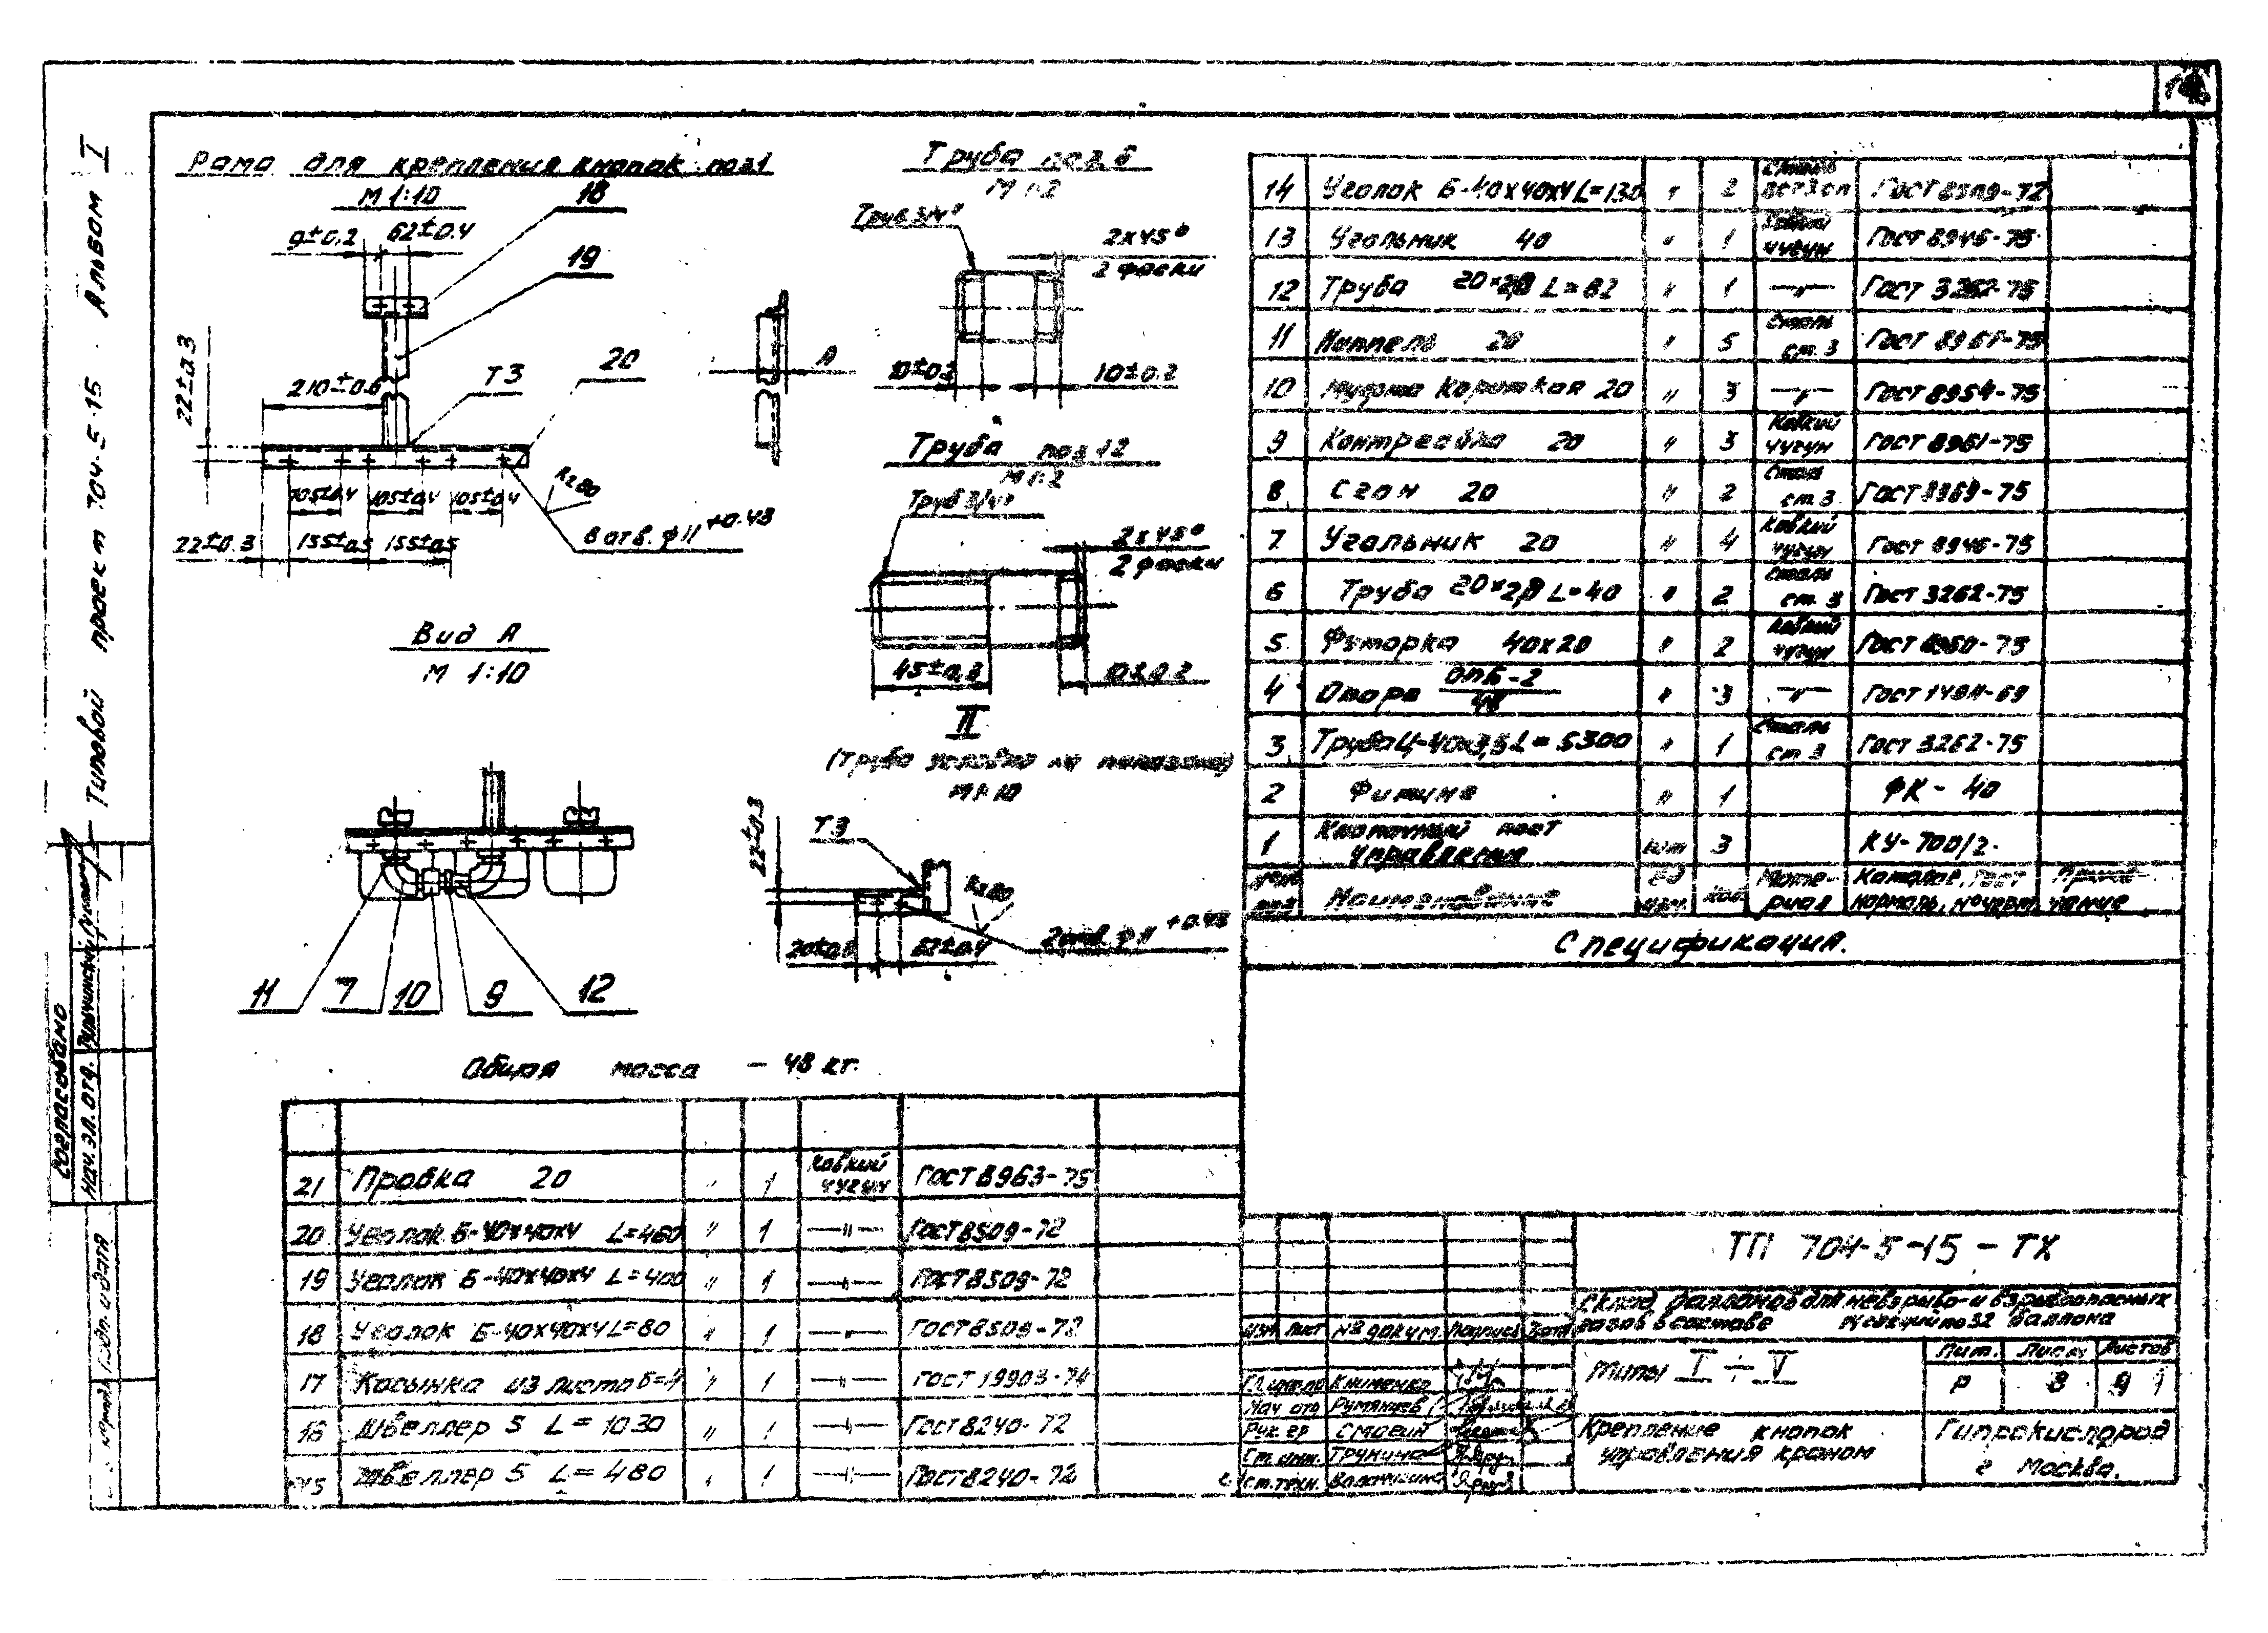 Типовой проект 704-5-15 Альбом I
Рама для крепления кнопок поз1
М 1:10
18
9±0.2
62±0.4
19
22±0.3
210±0.6
Т3
20
А
105±0.4
105±0.4
105±0.4
Rz80
22±0.3
155±0.5
155±0.5
6 отв. ф11 +0.43
Вид А
М 1:10
11
7
10
9
12
Труба поз. 6
М 1:2
Труб 3/4"
2х45°
2 фаски
10±0.2
10±0.2
Труба поз 12
М 1:2
Труб 3/4"
2х45°
2 фаски
45±0.3
10±0.2
II
(Труба условно не показана)
М 1:10
22±0.3
Т3
Rz80
62±0.4
2 отв. ф11 +0.43
Общая масса - 48 кг.
14 Уголок Б-40х40х4 L=130 " 2 Сталь ГОСТ 8509-72
13 Угольник 40 " 1 Ковкий чугун ГОСТ 8946-75
12 Труба 20х2,8 L=82 " 1 —"— ГОСТ 3262-75
11 Ниппель 20 " 5 Сталь ст.3 ГОСТ 8967-75
10 Муфта короткая 20 " 3 —"— ГОСТ 8954-75
9 Контргайка 20 " 3 Ковкий чугун ГОСТ 8961-75
8 Сгон 20 " 2 Сталь ст.3 ГОСТ 8969-75
7 Угольник 20 " 4 Ковкий чугун ГОСТ 8946-75
6 Труба 20х2,8 L=40 " 2 Сталь ст. 3 ГОСТ 3262-75
5 Футорка 40х20 " 2 Ковкий чугун ГОСТ 8960-75
4 Опора ОПБ-2 / 48 " 3 —"— ГОСТ 14911-69
3 Труба Ц-40х3,5 L=5300 " 1 Сталь ст 3 ГОСТ 3262-75
2 Фитинг " 1 ФК-40
1 Кнопочный пост управления шт 3 КУ-700/2.
Наименование Ед изм. Кол. Мате-риал Каталог, Гост нормаль, № черт. Приме-чание
Спецификация.
21 Пробка 20 " 1 Ковкий чугун ГОСТ 8963-75
20 Уголок Б-40х40х4 L=460 " 1 —"— ГОСТ 8509-72
19 Уголок Б-40х40х4 L=400 " 1 —"— ГОСТ 8509-72
18 Уголок Б-40х40х4 L=80 " 1 —"— ГОСТ 8509-72
17 Косынка из листа б=4 " 1 —"— ГОСТ 19903-74
16 Швеллер 5 L=1030 " 1 —"— ГОСТ 8240-72
15 Швеллер 5 L=480 " 1 —"— ГОСТ 8240-72
ТП 704-5-15-ТХ
Склад баллонов для невзрыво- и взрывоопасных
газов в составе секций по 32 баллона
Изм. Лист № докум. Подпись Дата
Типы I ÷ V
Лит. Лист Листов
Р 8
Клименко
Нач отд Румянцев
Рук. гр Смагин
Ст. инж. Трунина
Ст. техн.
Крепление кнопок
управления краном
Гипрокислород
г Москва.
Согласовано
Нач. эл. отд.
Подп. и дата